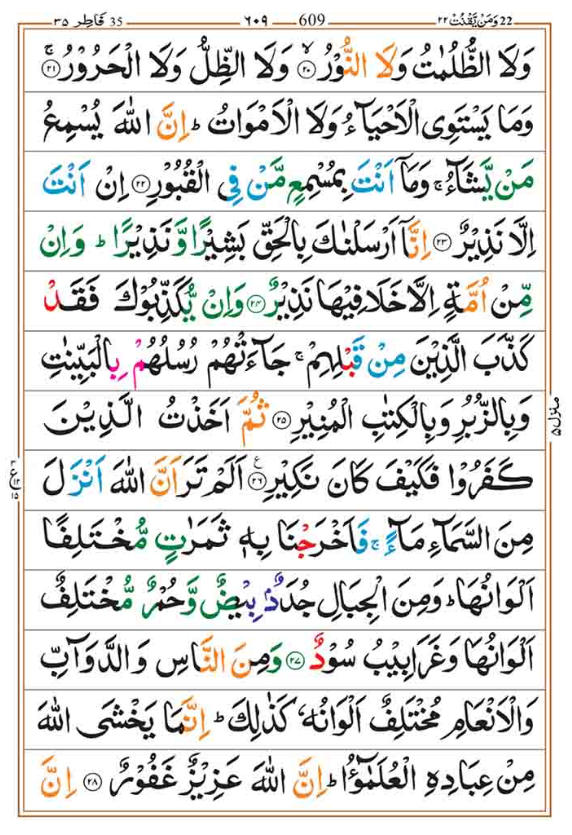 22 وَمَنْ يَّقْنُتْ ٢٢ 609 ٦٠٩ 35 فَاطِر ٣٥
وَلَا الظُّلُمٰتُ وَلَا النُّوْرُ ۙ‏﴿۲۰﴾ وَلَا الظِّلُّ وَلَا الْحَرُوْرُ ۚ‏﴿۲۱﴾
وَمَا يَسْتَوِى الْاَحْيَآءُ وَلَا الْاَمْوَاتُ ؕ اِنَّ اللّٰهَ يُسْمِعُ
مَنْ يَّشَآءُ ۚ وَمَاۤ اَنْتَ بِمُسْمِعٍ مَّنْ فِى الْقُبُوْرِ ﴿۲۲﴾ اِنْ اَنْتَ
اِلَّا نَذِيْرٌ ﴿۲۳﴾ اِنَّاۤ اَرْسَلْنٰكَ بِالْحَقِّ بَشِيْرًا وَّنَذِيْرًا ؕ وَاِنْ
مِّنْ اُمَّةٍ اِلَّا خَلَا فِيْهَا نَذِيْرٌ ﴿۲۴﴾ وَاِنْ يُّكَذِّبُوْكَ فَقَدْ
كَذَّبَ الَّذِيْنَ مِنْ قَبْلِهِمْ ۚ جَآءَتْهُمْ رُسُلُهُمْ بِالْبَيِّنٰتِ
وَبِالزُّبُرِ وَبِالْكِتٰبِ الْمُنِيْرِ ﴿۲۵﴾ ثُمَّ اَخَذْتُ الَّذِيْنَ
كَفَرُوْا فَكَيْفَ كَانَ نَكِيْرِ ﴿۲۶﴾ اَلَمْ تَرَ اَنَّ اللّٰهَ اَنْزَلَ
مِنَ السَّمَآءِ مَآءً ۚ فَاَخْرَجْنَا بِهٖ ثَمَرٰتٍ مُّخْتَلِفًا
اَلْوَانُهَا ؕ وَمِنَ الْجِبَالِ جُدَدٌۢ بِيْضٌ وَّحُمْرٌ مُّخْتَلِفٌ
اَلْوَانُهَا وَغَرَابِيْبُ سُوْدٌ ﴿۲۷﴾ وَمِنَ النَّاسِ وَالدَّوَآبِّ
وَالْاَنْعَامِ مُخْتَلِفٌ اَلْوَانُهٗ كَذٰلِكَ ؕ اِنَّمَا يَخْشَى اللّٰهَ
مِنْ عِبَادِهِ الْعُلَمٰٓؤُا ؕ اِنَّ اللّٰهَ عَزِيْزٌ غَفُوْرٌ ﴿۲۸﴾ اِنَّ
منزل ٥